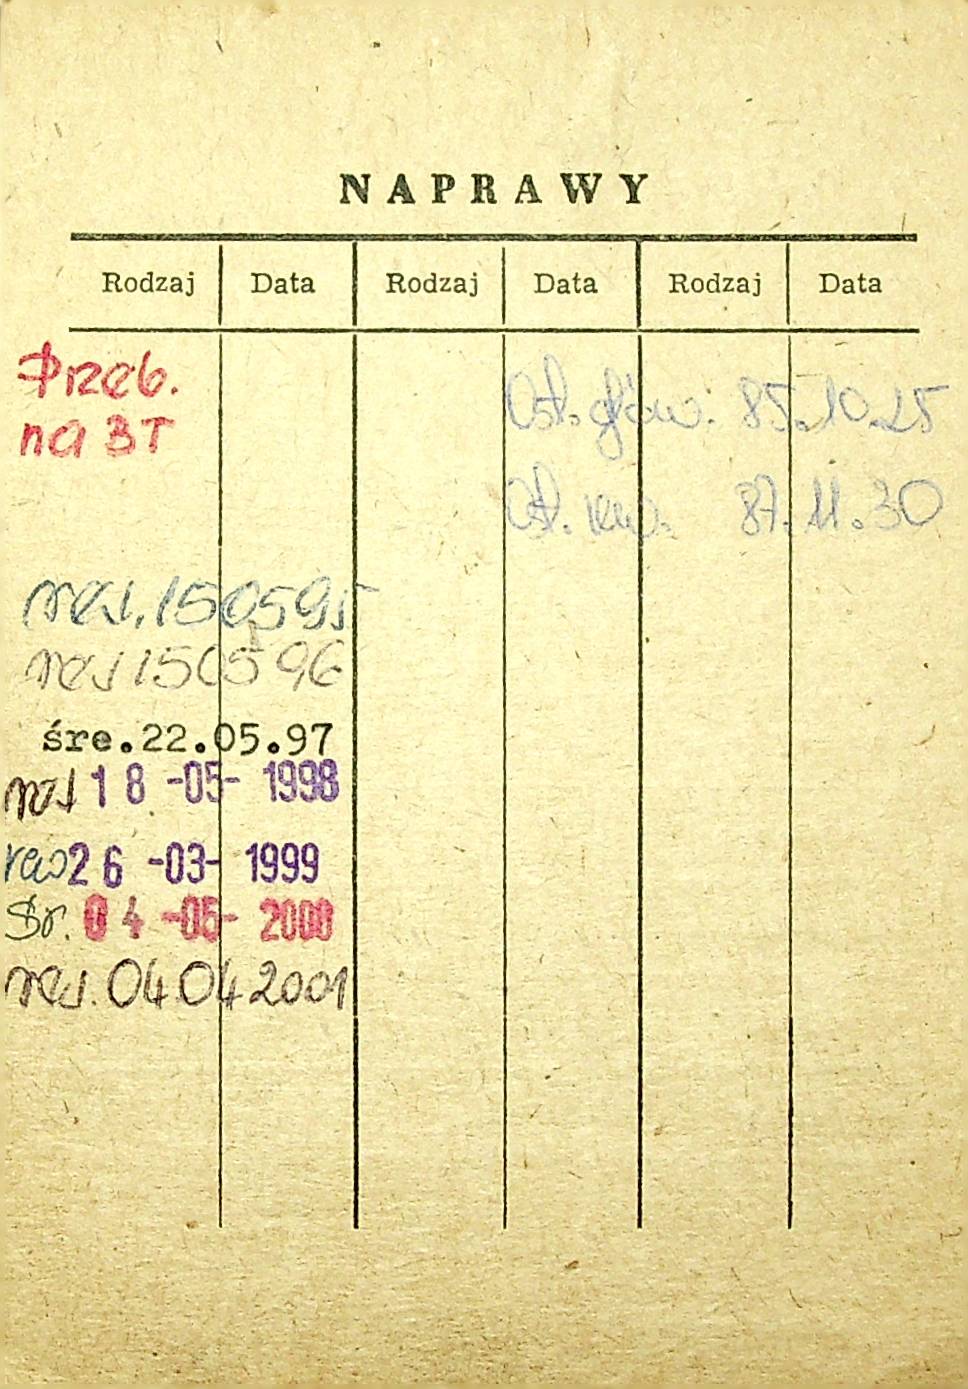 NAPRAWY
Rodzaj Data Rodzaj Data Rodzaj Data
Przeb.
na BT
Ost. głów. 85.10.25
Ost. 87.11.30
rew. 150595
rew 150596
śre.22.05.97
rew 18 -05- 1998
rew 26 -03- 1999
Śr. 04 -05- 2000
rew. 04 04 2001